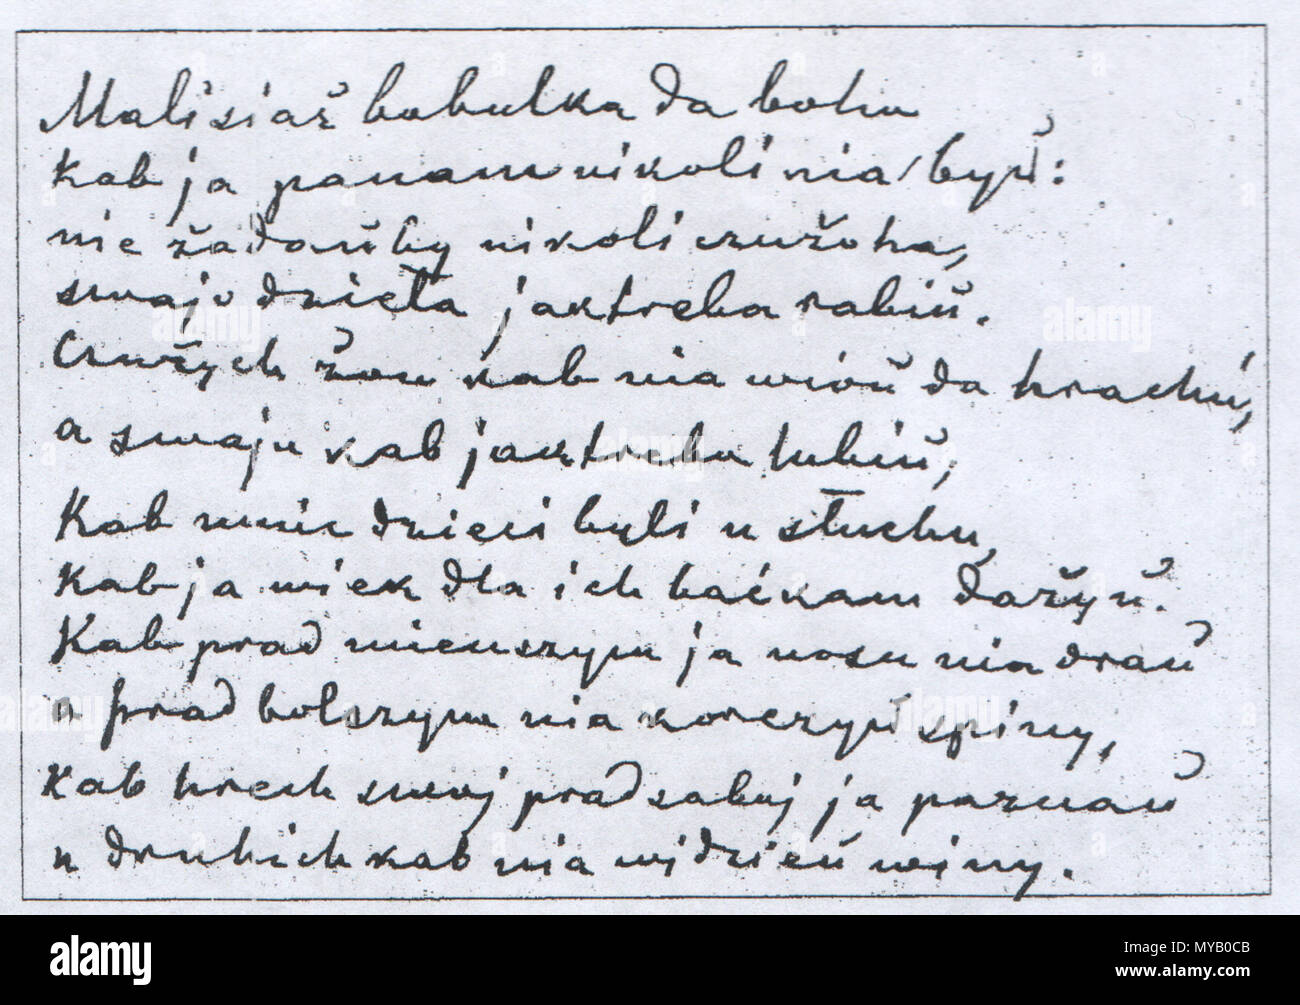 Malisiaž babulka da bohu
Kab ja panam nikoli nia byŭ:
nie žadaŭby nikoli czužoha,
swajo dzieła jaktreba rabiŭ.
Czužych žon kab nia wioŭ da hrachú,
a swaju kab jaktreba lubiŭ,
Kab maie dzieci byli u słuchu,
Kab ja wiek dla ich baćkam dažyŭ.
Kab prad mienszym ja nosu nia draŭ
a prad bolszym nia korczyŭ spiny,
kab hrech swoj prad saboj ja paznaŭ
u druhich kab nia widzieŭ winy.
alamy
alamy
MYB0CB
www.alamy.com